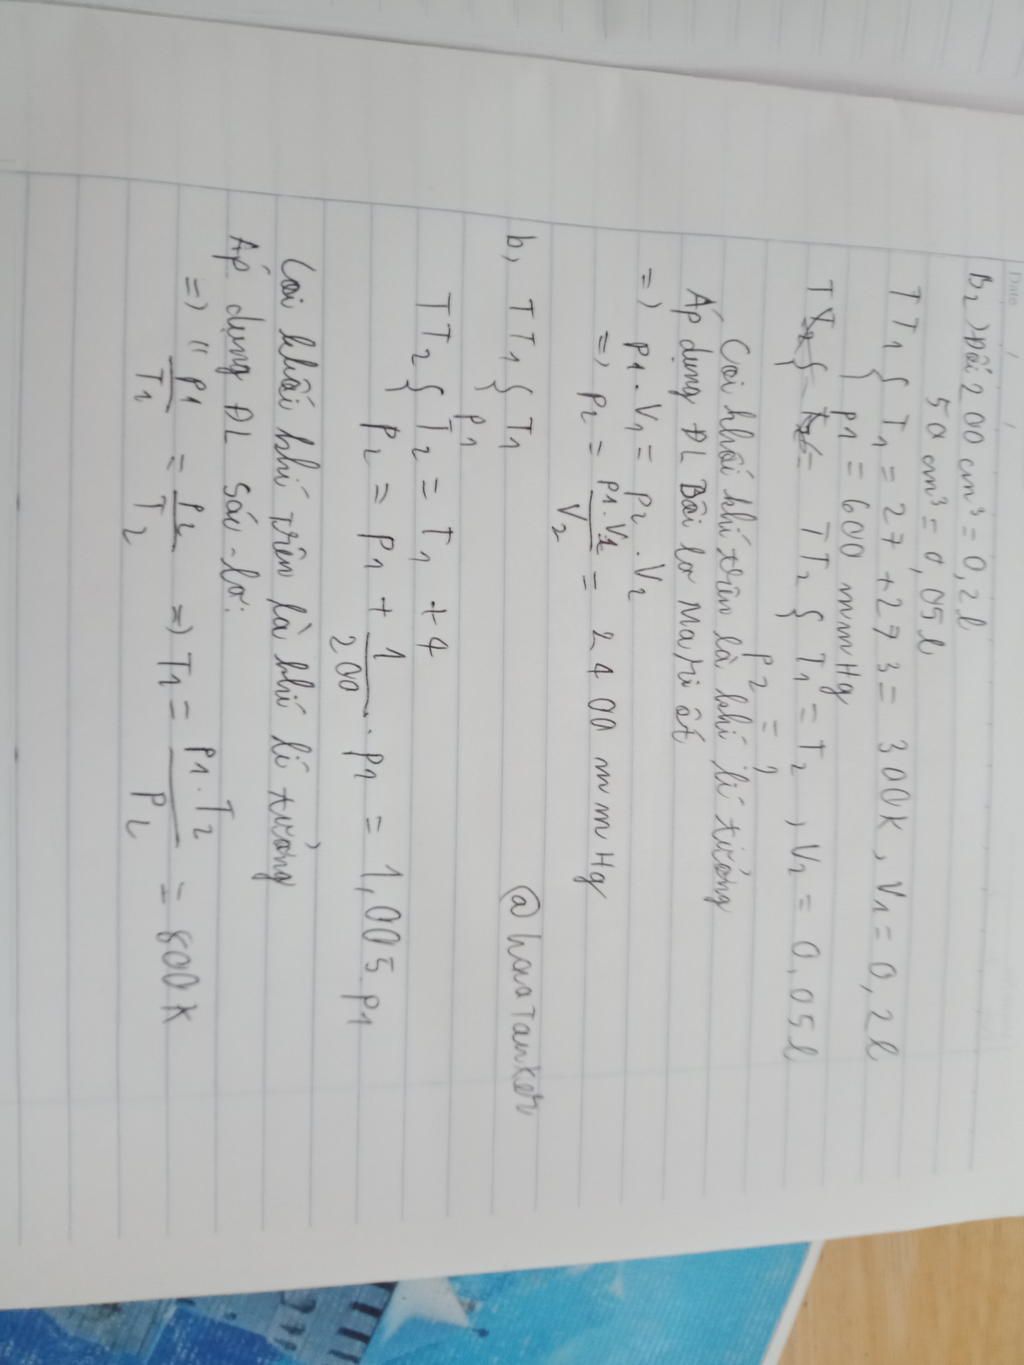 Date
B2) Đổi 200 cm³ = 0,2l
50 cm³ = 0,05l
TT1 { T1 = 27 + 273 = 300K, V1 = 0,2l
p1 = 600 mmHg
TT2 { T1 = T2, V2 = 0,05l
p2 = ?
Coi khối khí trên là khí lí tưởng
Áp dụng ĐL Bôi lơ Mari ốt
=) p1 . V1 = p2 . V2
=) p2 = p1.V1 / V2 = 2400 mmHg
@hoaTanker
b, TT1 { T1
p1
TT2 { T2 = T1 + 4
p2 = p1 + 1/200 . p1 = 1,005 p1
Coi khối khí trên là khí lí tưởng
Áp dụng ĐL Sác-lơ:
=) " p1/T1 = p2/T2 =) T1 = p1.T2 / p2 = 800K